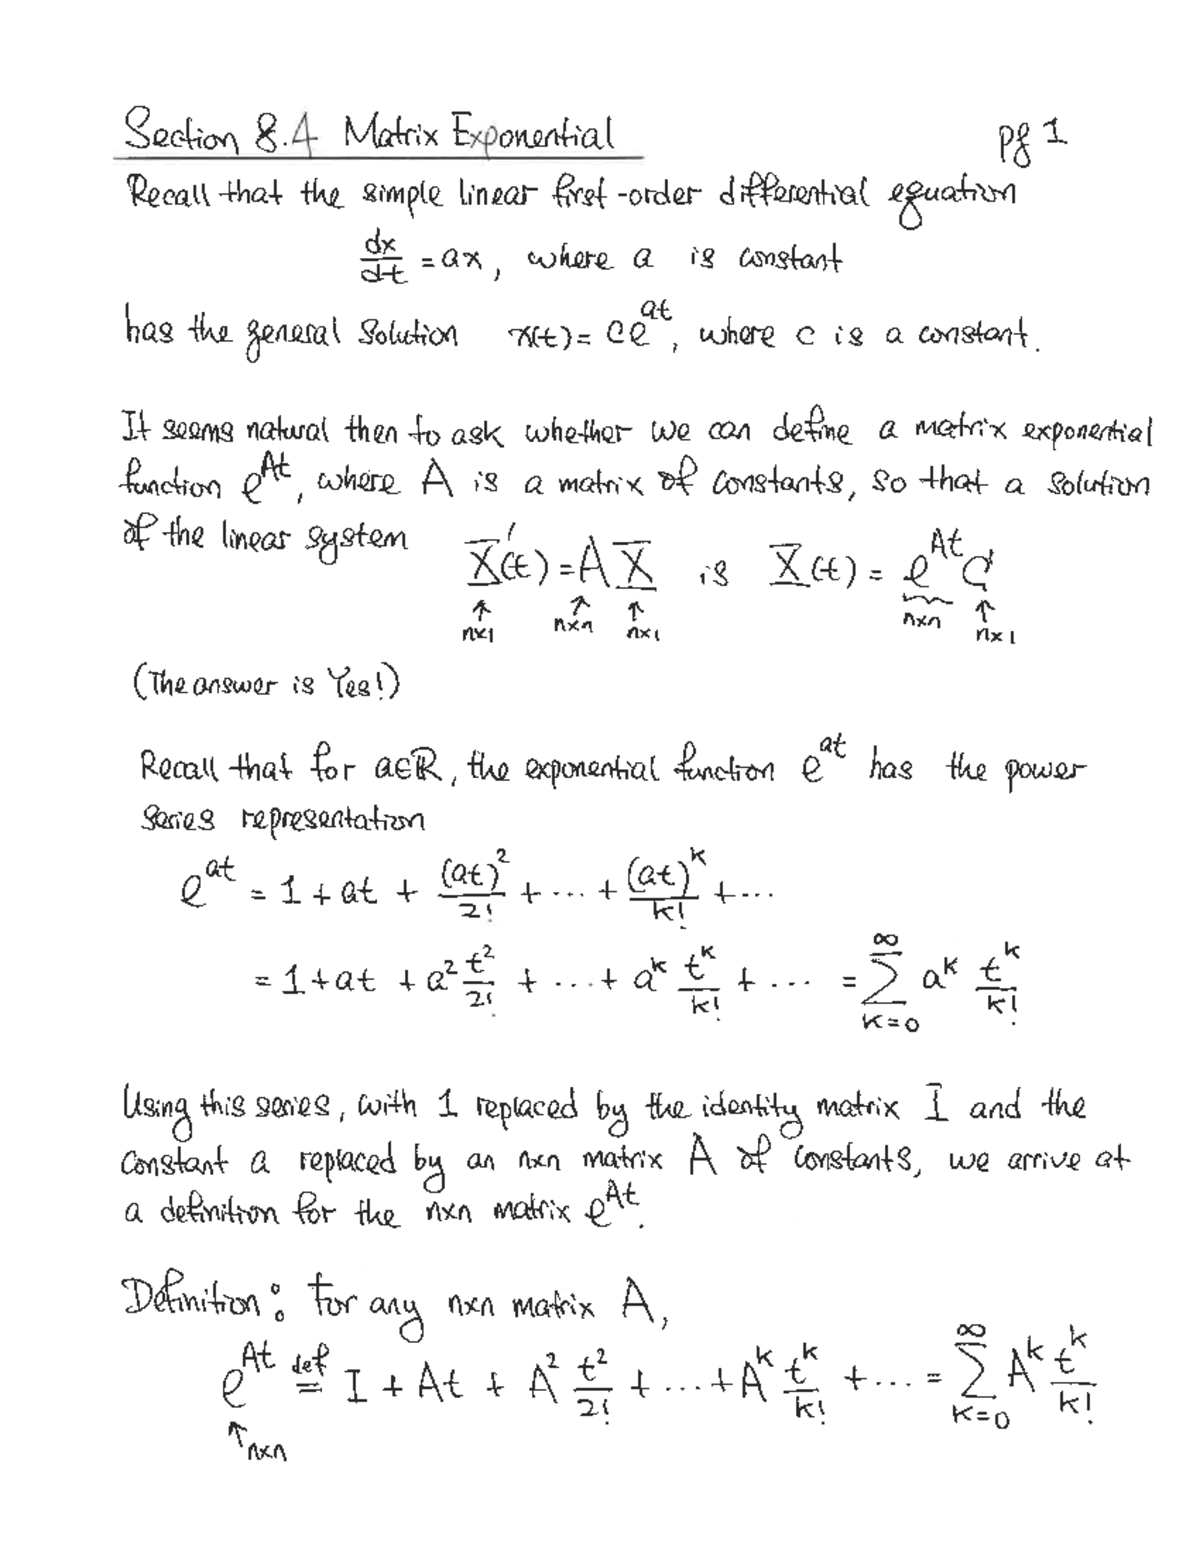 Section 8.4 Matrix Exponential pg 1
Recall that the simple linear first-order differential equation
dx/dt = ax, where a is constant
has the general solution x(t) = ce^{at}, where c is a constant.
It seems natural then to ask whether we can define a matrix exponential
function e^{At}, where A is a matrix of constants, so that a solution
of the linear system X'(t) = AX is X(t) = e^{At}C
↑ n×1 ↑ n×n ↑ n×1 n×n ↑ n×1
(The answer is Yes!)
Recall that for a∈ℝ, the exponential function e^{at} has the power
series representation
e^{at} = 1 + at + (at)^2/2! + ... + (at)^k/k! + ...
= 1 + at + a^2 t^2/2! + ... + a^k t^k/k! + ... = ∑_{k=0}^{∞} a^k t^k/k!
Using this series, with 1 replaced by the identity matrix I and the
constant a replaced by an n×n matrix A of constants, we arrive at
a definition for the n×n matrix e^{At}.
Definition: For any n×n matrix A,
e^{At} def= I + At + A^2 t^2/2! + ... + A^k t^k/k! + ... = ∑_{k=0}^{∞} A^k t^k/k!
↑ n×n